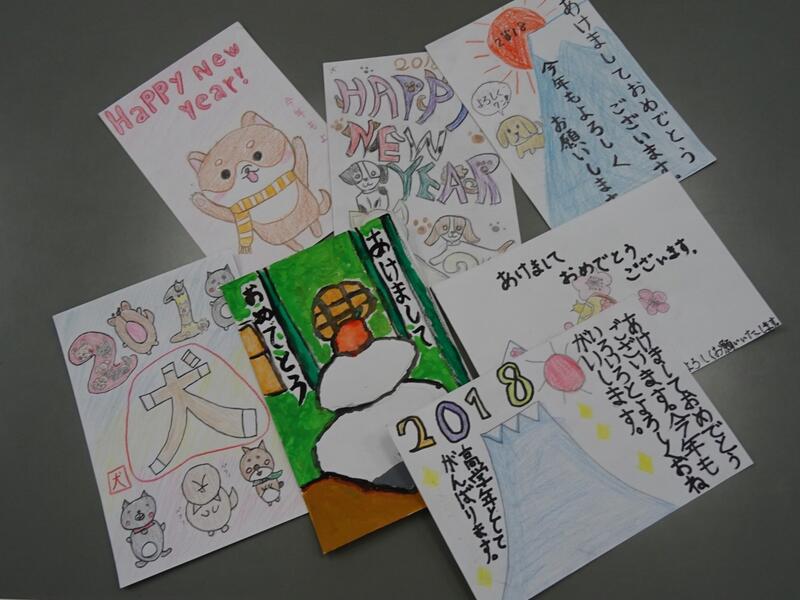 HaPPY New
Year!
今年もよ
201
HAPPY
NEW
YEAR
2018
あけましておめでとう
ございます。
今年もよろしく
お願いします
よろしく
ワン
あけまして
おめでとう
ございます。
よろしくお願いいたします
201
犬
犬
あけまして
おめでとう
2018
あけましておめでとう
ございます。今年も
いろいろとよろしくおね
がいします。
高学年として
がんばります。